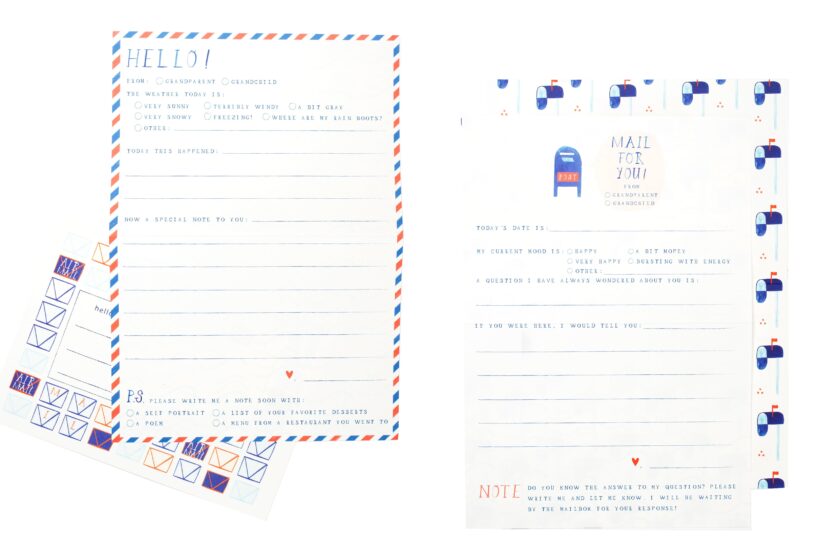 HELLO!
FROM: GRANDPARENT GRANDCHILD
THE WEATHER TODAY IS:
VERY SUNNY TERRIBLY WINDY A BIT GRAY
VERY SNOWY FREEZING! WHERE ARE MY RAIN BOOTS?
OTHER:
TODAY THIS HAPPENED:
NOW A SPECIAL NOTE TO YOU:
P.S. PLEASE WRITE ME A NOTE SOON WITH:
A SELF PORTRAIT A LIST OF YOUR FAVORITE DESSERTS
A POEM A MENU FROM A RESTAURANT YOU WENT TO
AIR MAIL
hello
AIR MAIL
MAIL
AIR MAIL
MAIL
FOR
YOU!
FROM
GRANDPARENT
GRANDCHILD
POST
TODAY'S DATE IS:
MY CURRENT MOOD IS: HAPPY A BIT MOPEY
VERY HAPPY BURSTING WITH ENERGY
OTHER:
A QUESTION I HAVE ALWAYS WONDERED ABOUT YOU IS:
IF YOU WERE HERE, I WOULD TELL YOU:
NOTE DO YOU KNOW THE ANSWER TO MY QUESTION? PLEASE
WRITE ME AND LET ME KNOW. I WILL BE WAITING
BY THE MAILBOX FOR YOUR RESPONSE!